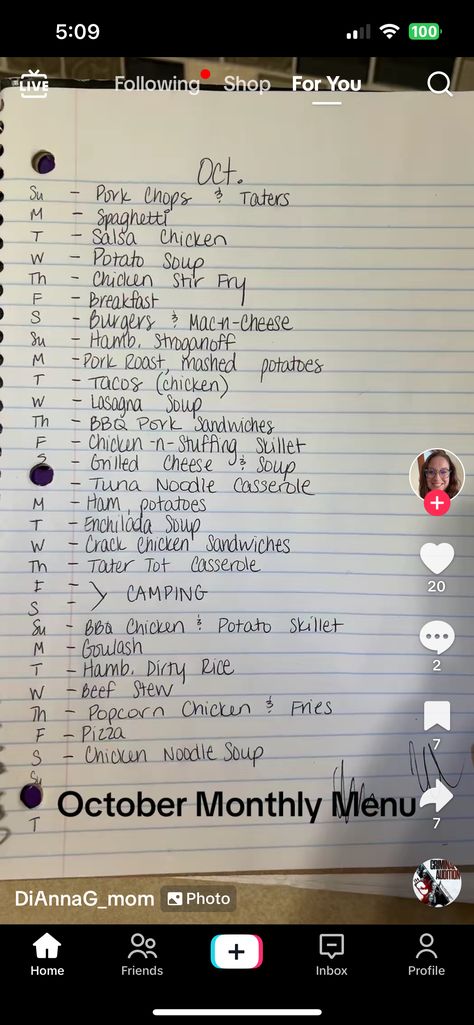 5:09
100
LIVE
Following
Shop
For You
Oct.
Su - Pork Chops & Taters
M - Spaghetti
T - Salsa Chicken
W - Potato Soup
Th - Chicken Stir Fry
F - Breakfast
S - Burgers & Mac-n-Cheese
Su - Hamb. Stroganoff
M - Pork Roast, mashed potatoes
T - Tacos (chicken)
W - Lasagna Soup
Th - BBQ Pork Sandwiches
F - Chicken-n-Stuffing Skillet
S - Grilled Cheese & Soup
- Tuna Noodle Casserole
M - Ham, potatoes
T - Enchilada Soup
W - Crack Chicken Sandwiches
Th - Tater Tot Casserole
F - } CAMPING
S -
Su - BBQ Chicken & Potato Skillet
M - Goulash
T - Hamb. Dirty Rice
W - Beef Stew
Th - Popcorn Chicken & Fries
F - Pizza
S - Chicken Noodle Soup
Su
October Monthly Menu
T
20
2
7
7
DiAnnaG_mom
Photo
Home
Friends
Inbox
Profile